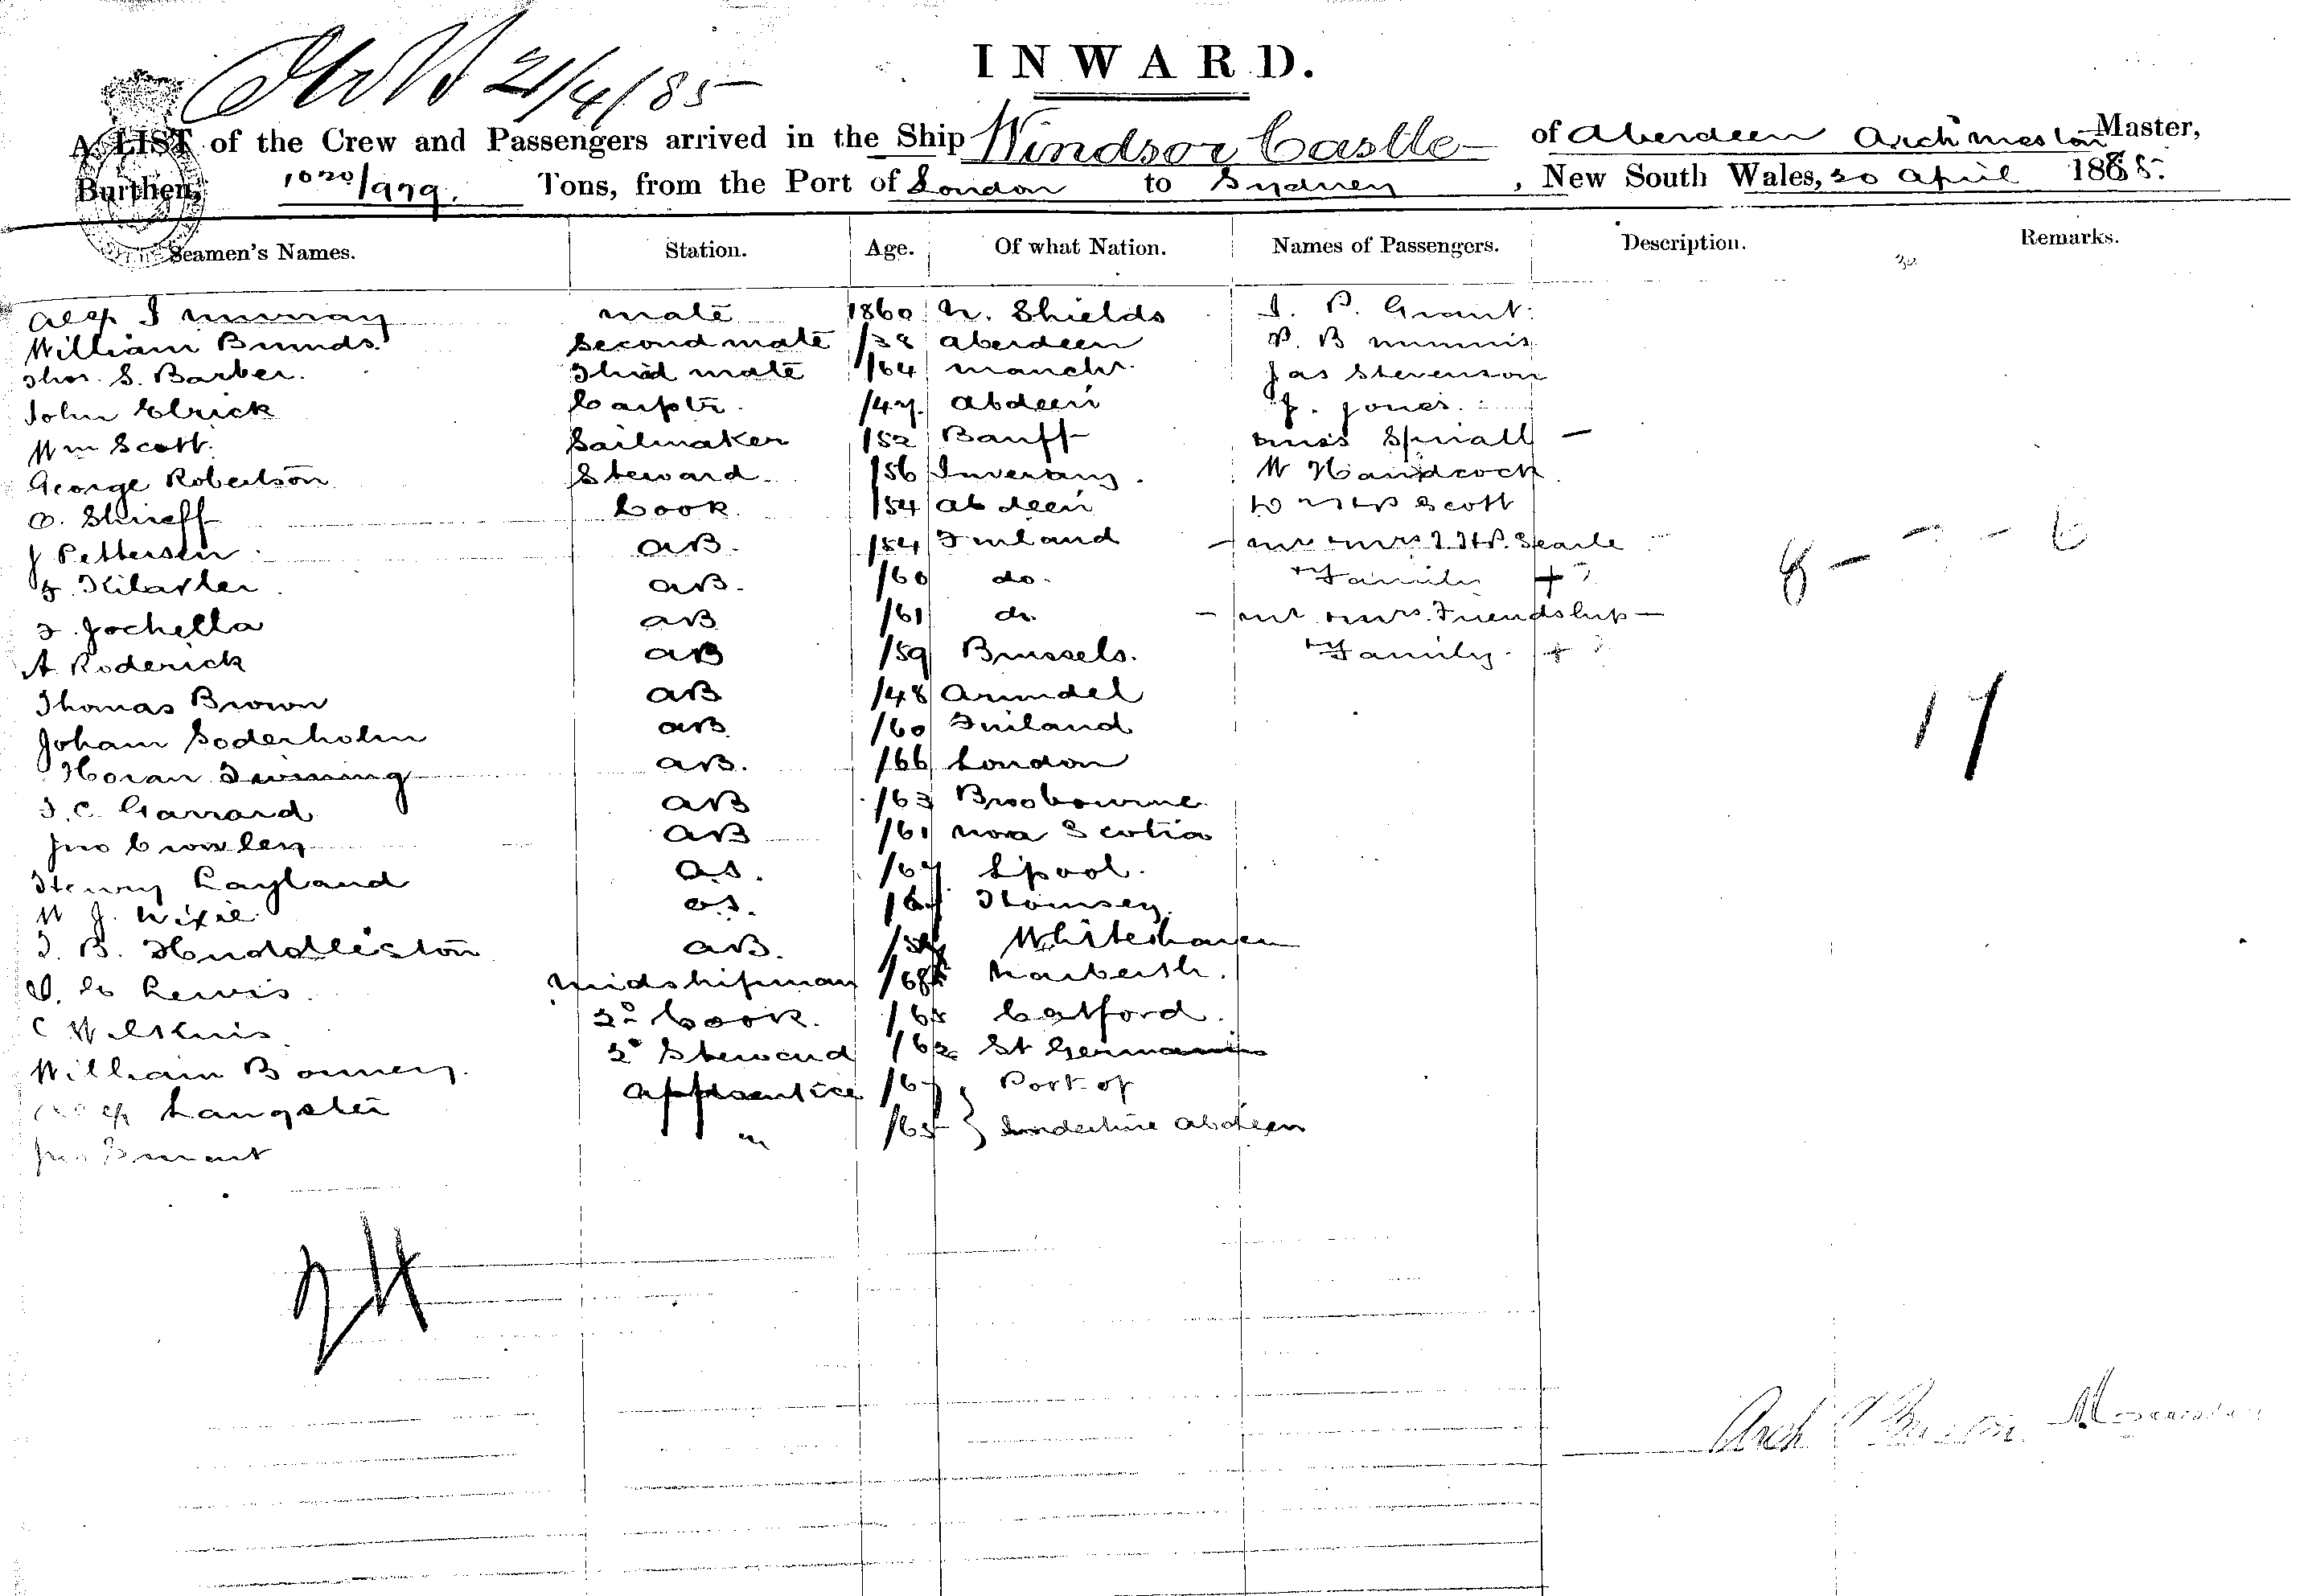 21/4/85
INWARD.
A LIST of the Crew and Passengers arrived in the Ship Windsor Castle of Aberdeen Arch Master,
Burthen, 1020/979. Tons, from the Port of London to Sydney, New South Wales, 20 April 1885.
Seamen's Names. Station. Age. Of what Nation. Names of Passengers. Description. Remarks.
Murray mate 1860 N. Shields J. P. Grant.
William second mate /38 Aberdeen P. B
Thos. S. Barber. Third mate /64 Manchr. Jas Stevenson
John Elrick Carptr. /47. Abdeen J. Jones.
Wm Scott. Sailmaker /52 Banff Miss Small —
George Robertson Steward. /56 W Handcock
Shireff Cook. /54 Abdeen Scott
J Pettersen AB. /54 Finland — Mr & Mrs Searle
AB. /60 do. + Family +
J. Jochella AB /61 do. — Mr & Mrs. Friendship —
A. Roderick AB /59 Brussels. + Family. +
Thomas Brown AB /48 Arundel 17
Joham Soderholm AB /60 Finland
AB. /66 London
J. C. Garrard AB /63 Broxbourne.
Jno Crowley AB /61 Nova Scotia
Henry Layland O.S. /67 Lpool.
W J. O.S. Romsey.
J. B. Huddleston AB. Whitehaven
Lewis Midshipman /68 Narberth.
C Wilkins 2d Cook. /65 Catford.
William Bonney. 2d Steward /62 St Germans
Langster Apprentice /67 } Port of
Jno " /65 } Abdeen
24
Arch